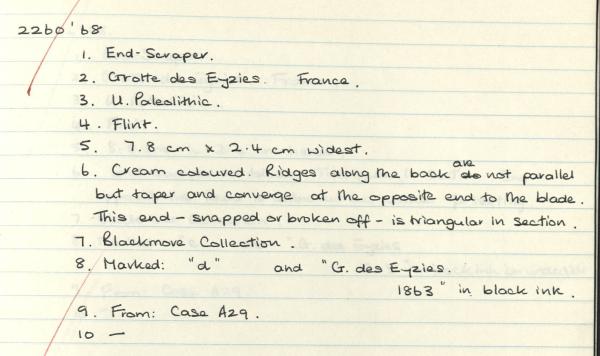 2260'68
1. End-Scraper.
2. Grotte des Eyzies. France.
3. U. Paleolithic.
4. Flint.
5. 7.8 cm x 2.4 cm widest.
6. Cream coloured. Ridges along the back are not parallel
but taper and converge at the opposite end to the blade.
This end - snapped or broken off - is triangular in section.
7. Blackmore Collection.
8. Marked: "d" and "G. des Eyzies.
1863" in black ink.
9. From: Case A29.
10 —